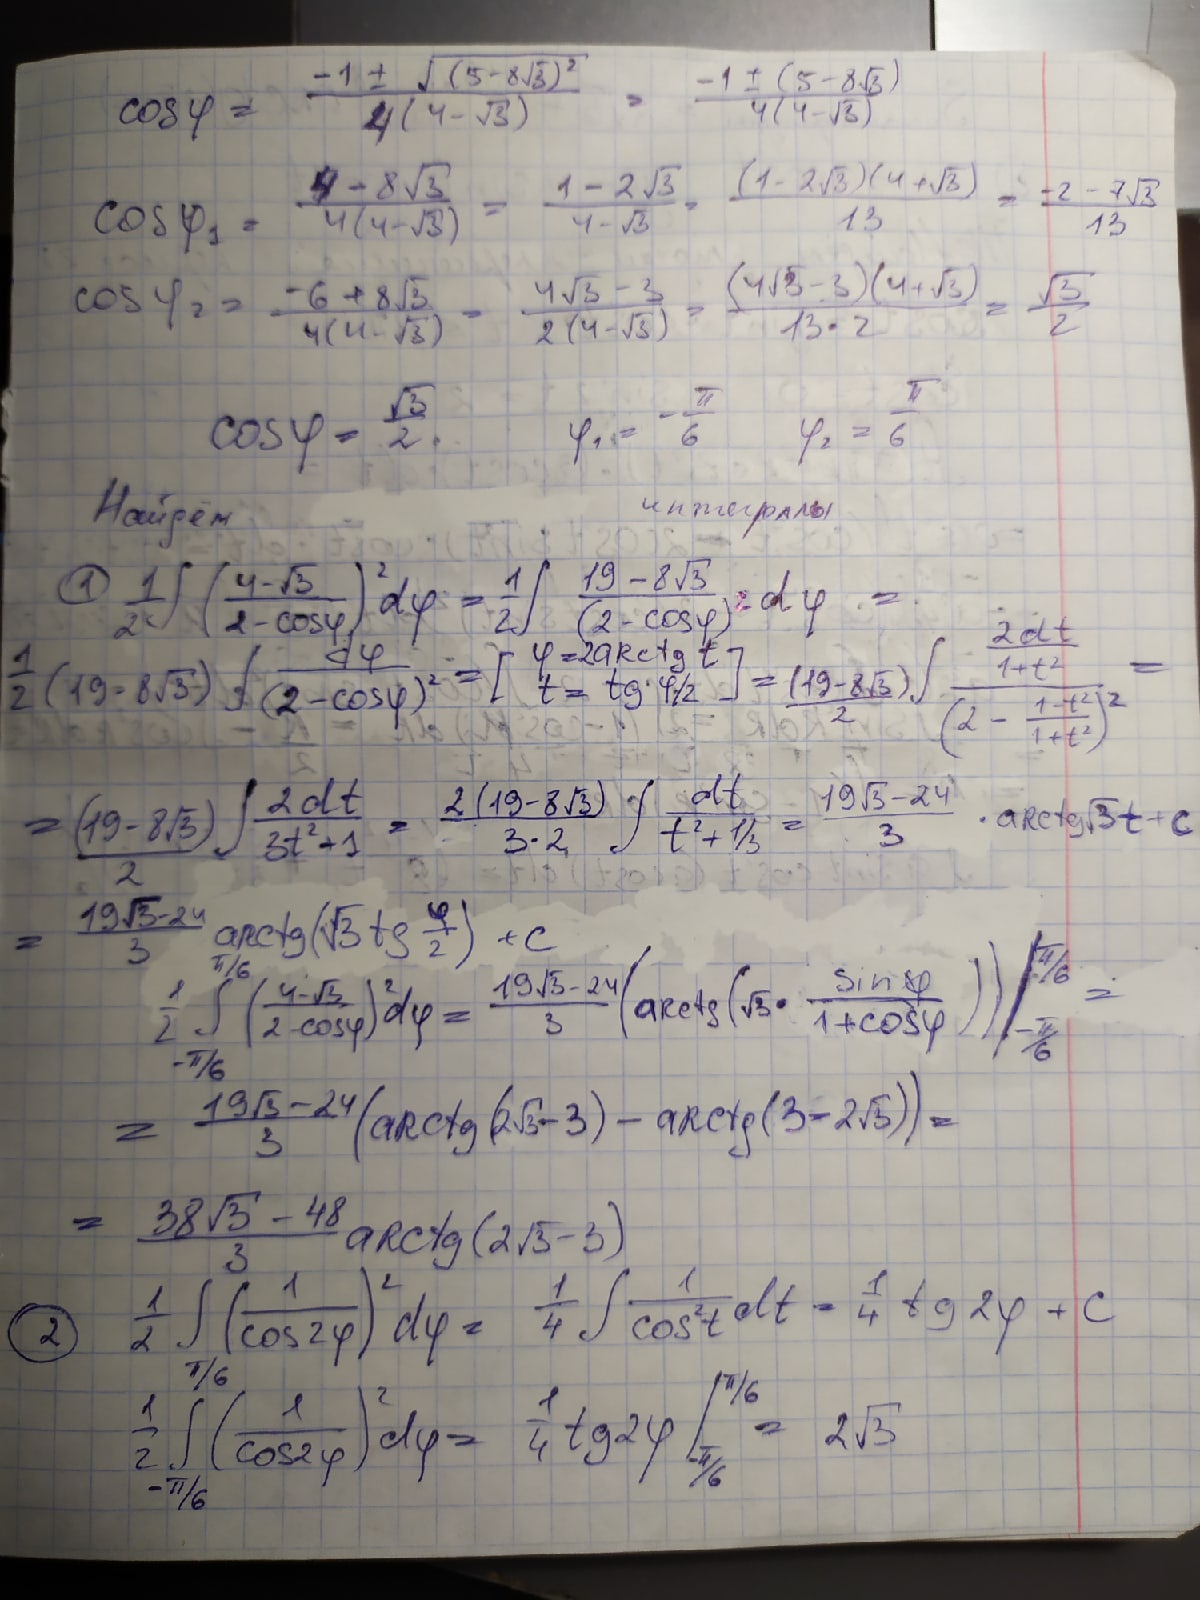 cosφ = (-1 ± √((5-8√3)²))/(4(4-√3)) = (-1 ± (5-8√3))/(4(4-√3))
cosφ₁ = (4-8√3)/(4(4-√3)) = (1-2√3)/(4-√3) = ((1-2√3)(4+√3))/13 = (-2-7√3)/13
cosφ₂ = (-6+8√3)/(4(4-√3)) = (4√3-3)/(2(4-√3)) = ((4√3-3)(4+√3))/(13·2) = √3/2
cosφ = √3/2. φ₁ = -π/6 φ₂ = π/6
Найдём интегралы
① 1/2 ∫ ((4-√3)/(2-cosφ))² dφ = 1/2 ∫ (19-8√3)/(2-cosφ)² dφ =
1/2 (19-8√3) ∫ dφ/(2-cosφ)² = [φ=2arctg t t = tg φ/2] = (19-8√3)/2 ∫ (2dt/(1+t²))/(2 - (1-t²)/(1+t²))² =
= (19-8√3)/2 ∫ 2dt/(3t²+1) = 2(19-8√3)/(3·2) ∫ dt/(t²+1/3) = (19√3-24)/3 · arctg√3t + c
= (19√3-24)/3 arctg(√3 tg φ/2) + c
1/2 ∫_{-π/6}^{π/6} ((4-√3)/(2-cosφ))² dφ = (19√3-24)/3 (arctg(√3 · sinφ/(1+cosφ))) |_{-π/6}^{π/6} =
= (19√3-24)/3 (arctg(2√3-3) - arctg(3-2√3)) =
= (38√3-48)/3 arctg(2√3-3)
② 1/2 ∫ (1/cos2φ)² dφ = 1/4 ∫ 1/cos²t dt = 1/4 tg2φ + c
1/2 ∫_{-π/6}^{π/6} (1/cos2φ)² dφ = 1/4 tg2φ |_{-π/6}^{π/6} = 2√3